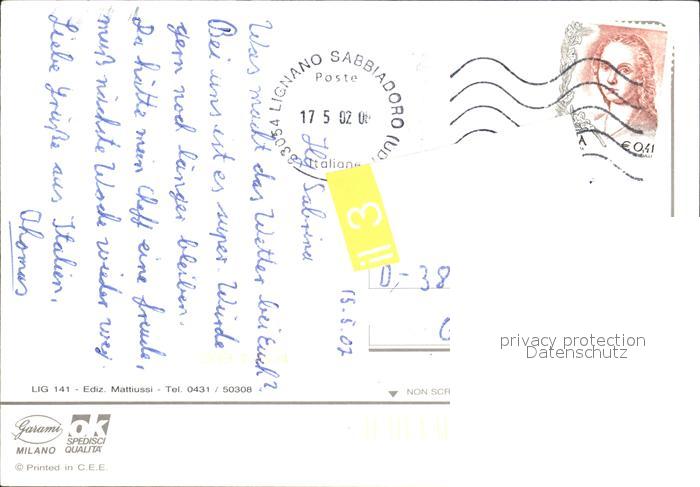 15.5.02
Hlg Sabrina
Was macht das Wetter bei Euch?
Bei uns ist es super. Würde
gern noch länger bleiben.
Da hätte mein Cheff eine Freude,
muß nächste Woche wieder weg.
Liebe Grüße aus Italien,
Thomas
33054 LIGNANO SABBIADORO (UD)
Poste
17 5 02
Italiane
€ 0,41
il 3
D-38
privacy protection
Datenschutz
LIG 141 - Ediz. Mattiussi - Tel. 0431 / 50308
NON SCR
Garami
MILANO
ok
SPEDISCI
QUALITA'
© Printed in C.E.E.